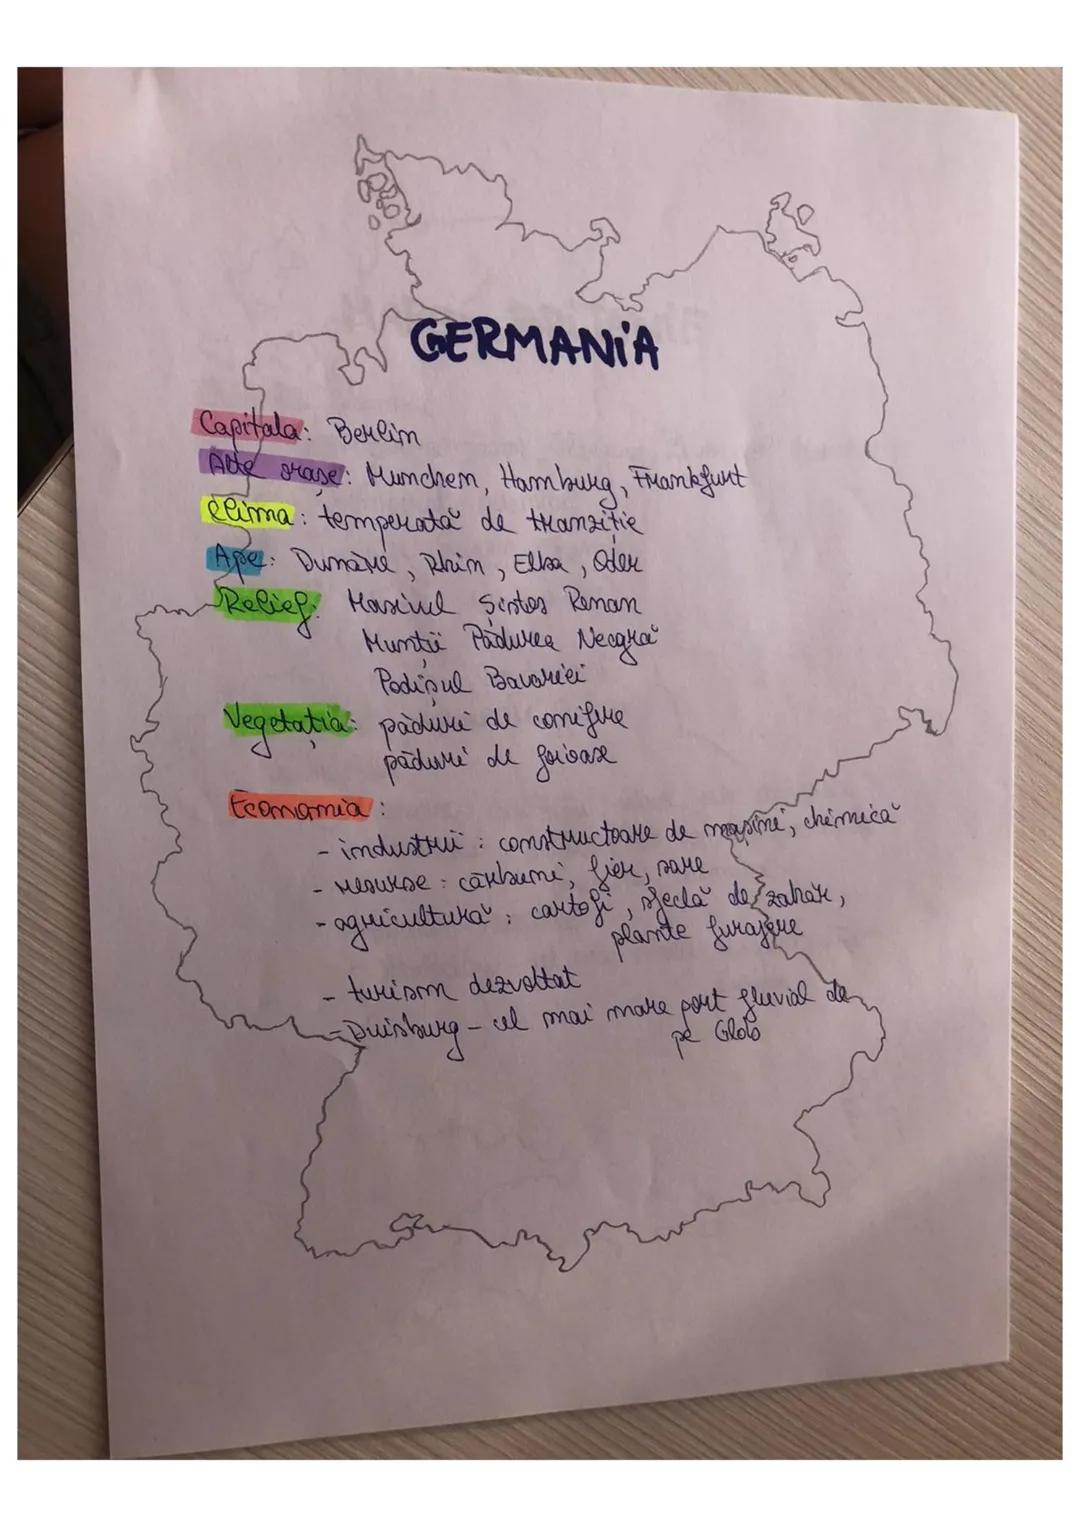 GERMANiA
Capitala: Berlin
Alte orașe: Munchen, Hamburg, Frankfurt
Clima: temperată de tranziție
Ape: Dunăre, Rhin, Elba, Oder
Relief: Masivul Șistos Renan
Munții Pădurea Neagră
Podișul Bavariei
Vegetația: păduri de conifere
păduri de foioase
Economia:
- industrii: constructoare de mașini, chimică
- resurse: cărbuni, fier, sare
- agricultură: cartofi, sfeclă de zahăr,
plante furajere
- turism dezvoltat
- Duisburg - cel mai mare port fluvial de
pe Glob